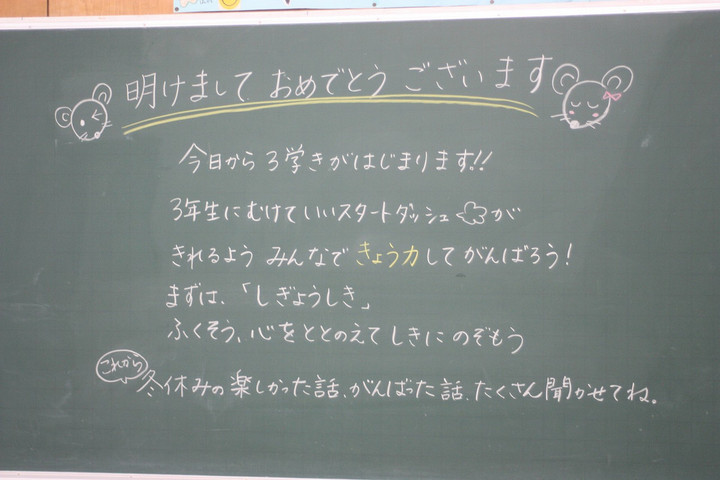 明けまして おめでとう ございます
今日から 3学きがはじまります!!
3年生にむけていいスタートダッシュが
きれるよう みんなで きょう力して がんばろう!
まずは、「しぎょうしき」
ふくそう、心をととのえてしきにのぞもう
これから
冬休みの楽しかった話、がんばった話、たくさん聞かせてね。